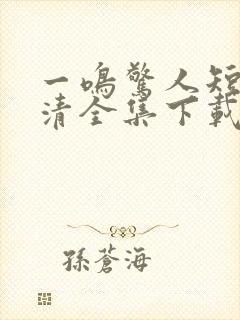 一鳴驚人短
清全集下載
孫蒼海